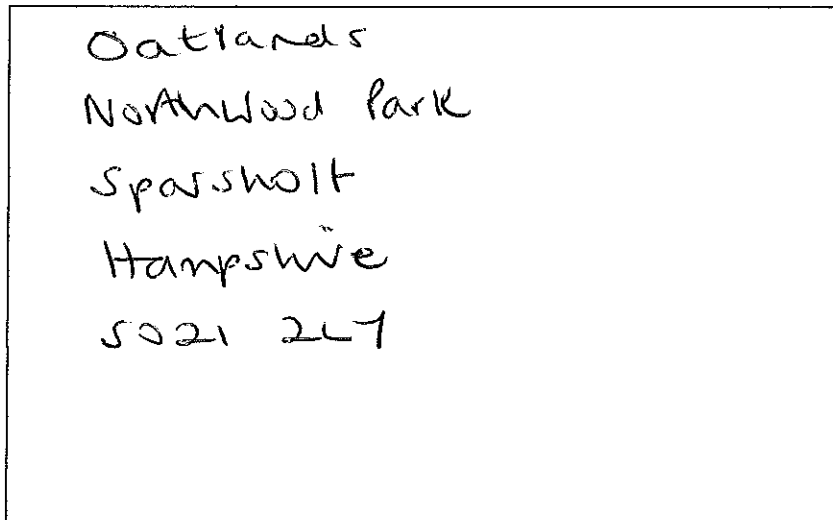 Oatlands
Northwood Park
Sparsholt
Hampshire
SO21 2LT